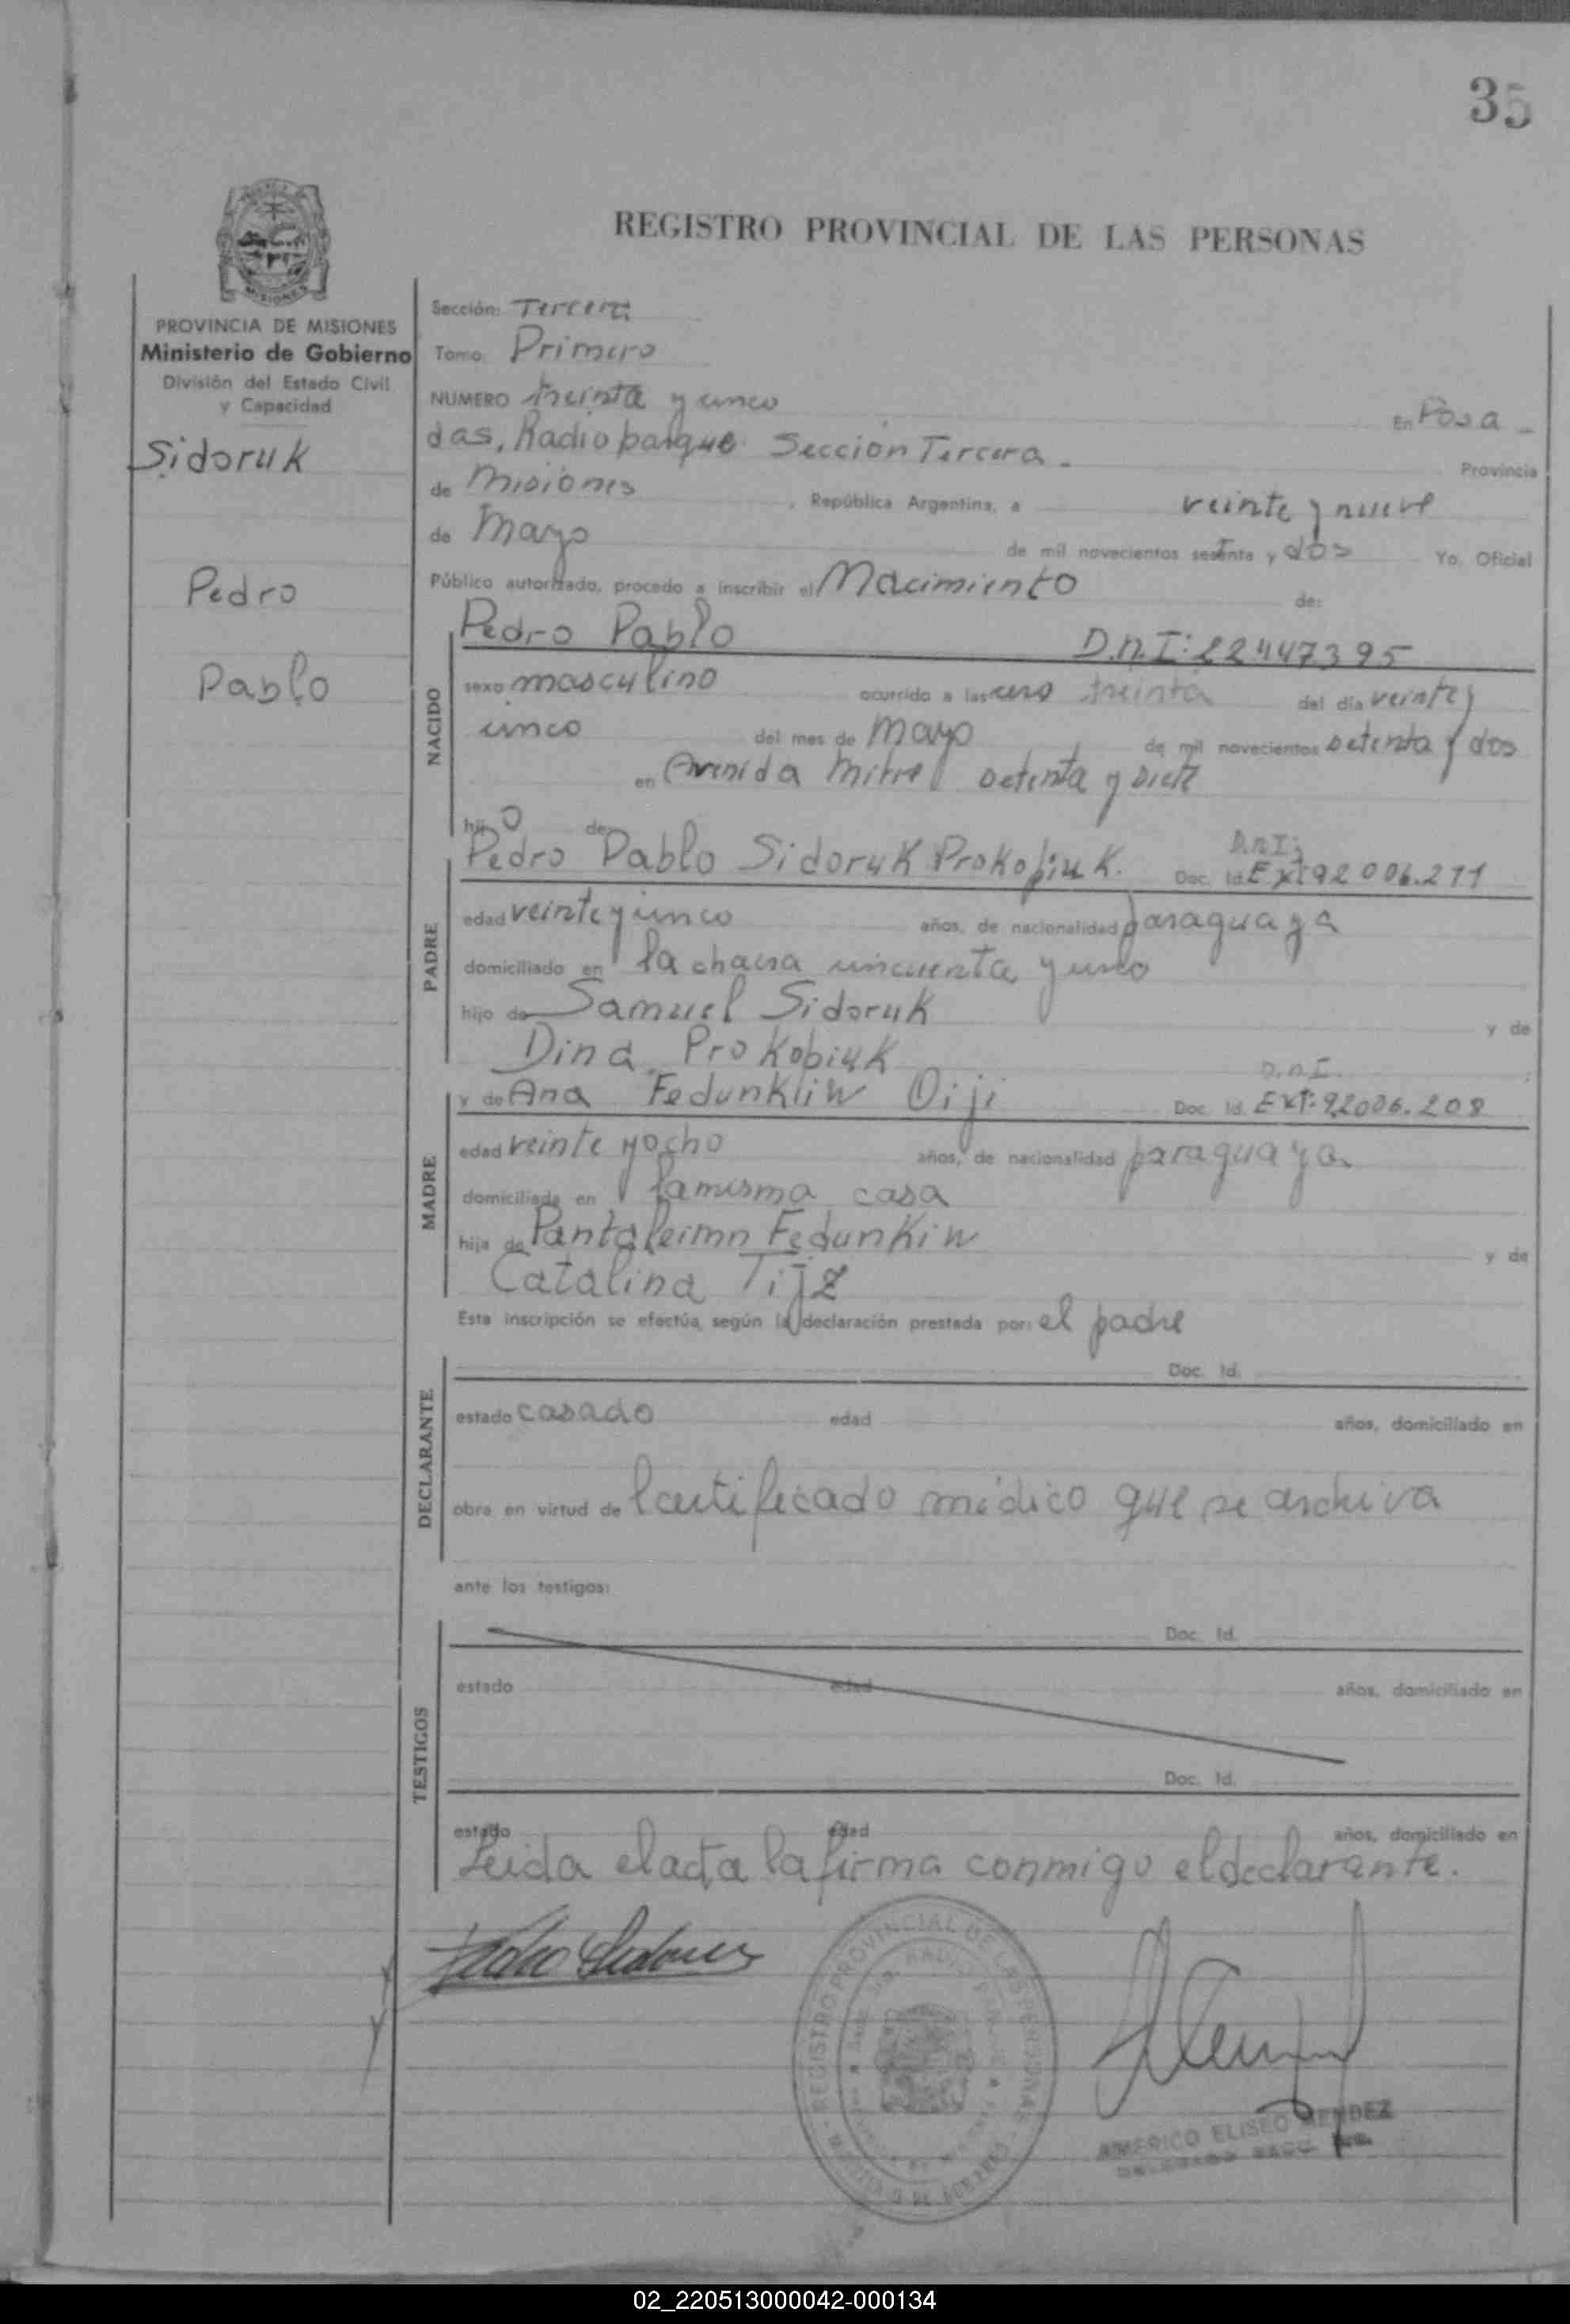 35
REGISTRO PROVINCIAL DE LAS PERSONAS
MISIONES
PROVINCIA DE MISIONES
Ministerio de Gobierno
División del Estado Civil
y Capacidad
Sidoruk
Pedro
Pablo
Sección: Tercera
Tomo: Primero
NUMERO treinta y cinco
En Posa-
das, Radio parque Sección Tercera- Provincia
de Misiones, República Argentina, a veinte y nueve
de Mayo de mil novecientos setenta y dos Yo, Oficial
Público autorizado, procedo a inscribir el Nacimiento de:
NACIDO
Pedro Pablo D.N.I: 22447395
sexo masculino ocurrido a las cero treinta del día veinte y
cinco del mes de mayo de mil novecientos setenta y dos
en Avenida Mitre setenta y siete
hijo de:
PADRE
Pedro Pablo Sidoruk Prokopiuk. D.N.I: Doc. Id. Ext 92006.211
edad veinte y cinco años, de nacionalidad paraguaya
domiciliado en la chacra cincuenta y uno
hijo de Samuel Sidoruk y de
Dina Prokobiuk
MADRE
y de Ana Fedunkiiw Oiji D.N.I. Doc. Id. Ext: 92006.208
edad veinte y ocho años, de nacionalidad paraguaya
domiciliada en la misma casa
hija de Pantaleimn Fedunkiw y de
Catalina
Esta inscripción se efectúa, según la declaración prestada por: el padre
DECLARANTE
Doc. Id.
estado casado edad años, domiciliado en
obra en virtud de l certificado médico que se archiva
ante los testigos:
TESTIGOS
Doc. Id.
estado edad años, domiciliado en
Doc. Id.
estado edad años, domiciliado en
Leida el acta la firma conmigo el declarante.
REGISTRO PROVINCIAL DE LAS PERSONAS
RADIO PARQUE
AMERICO ELISEO MENDEZ
02_220513000042-000134